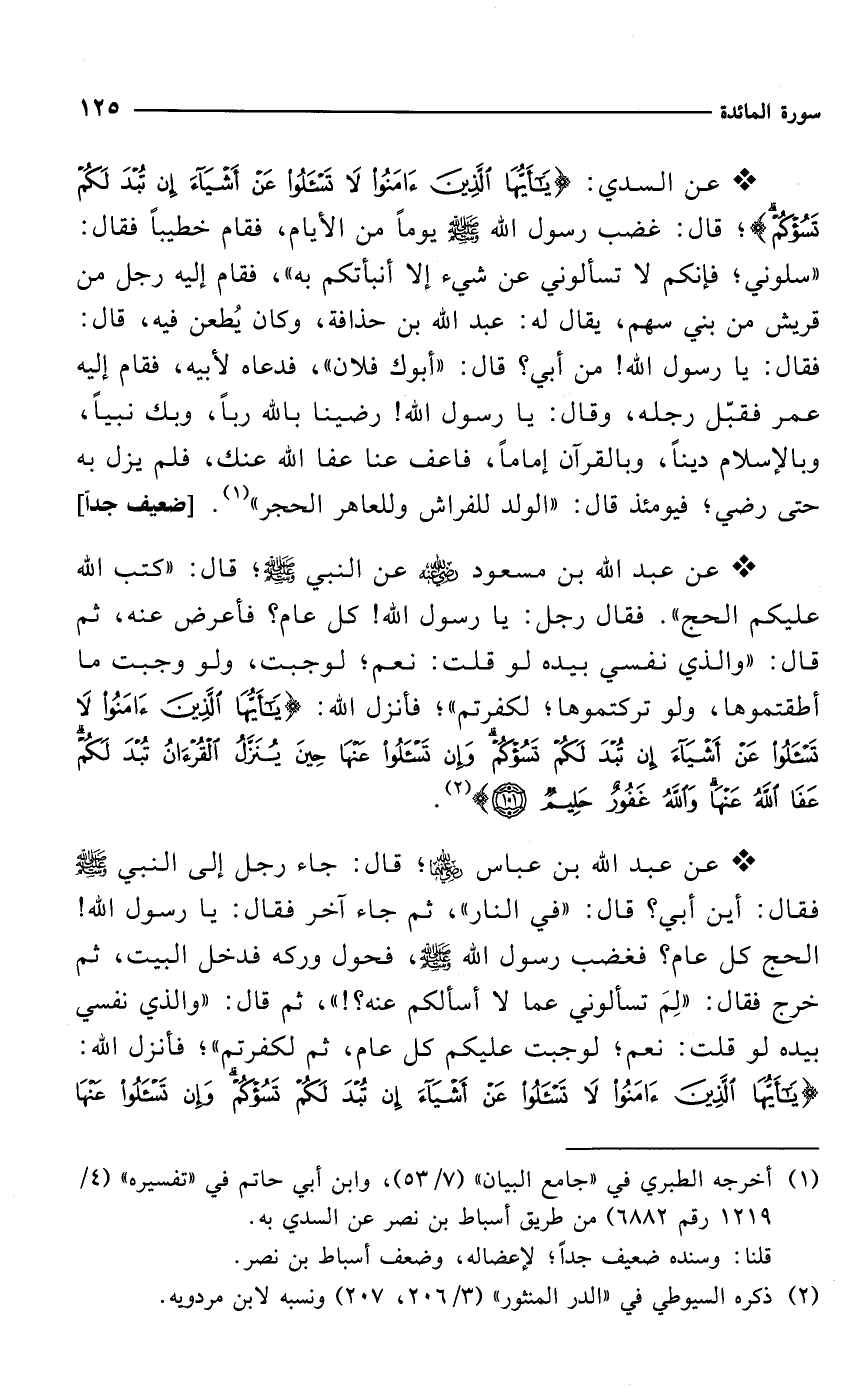 سورة المائدة ١٢٥
❖ عن السدي: ﴿يَٰٓأَيُّهَا ٱلَّذِينَ ءَامَنُوا۟ لَا تَسْـَٔلُوا۟ عَنْ أَشْيَآءَ إِن تُبْدَ لَكُمْ
تَسُؤْكُمْ ۖ﴾؛ قال: غضب رسول الله ﷺ يوماً من الأيام، فقام خطيباً فقال:
«سلوني؛ فإنكم لا تسألوني عن شيء إلا أنبأتكم به»، فقام إليه رجل من
قريش من بني سهم، يقال له: عبد الله بن حذافة، وكان يُطعن فيه، قال:
فقال: يا رسول الله! من أبي؟ قال: «أبوك فلان»، فدعاه لأبيه، فقام إليه
عمر فقبّل رجله، وقال: يا رسول الله! رضينا بالله رباً، وبك نبياً،
وبالإسلام ديناً، وبالقرآن إماماً، فاعف عنا عفا الله عنك، فلم يزل به
حتى رضي؛ فيومئذ قال: «الولد للفراش وللعاهر الحجر»(١). [ضعيف جداً]
❖ عن عبد الله بن مسعود رضي الله عنه عن النبي ﷺ؛ قال: «كتب الله
عليكم الحج». فقال رجل: يا رسول الله! كل عام؟ فأعرض عنه، ثم
قال: «والذي نفسي بيده لو قلت: نعم؛ لوجبت، ولو وجبت ما
أطقتموها، ولو تركتموها؛ لكفرتم»؛ فأنزل الله: ﴿يَٰٓأَيُّهَا ٱلَّذِينَ ءَامَنُوا۟ لَا
تَسْـَٔلُوا۟ عَنْ أَشْيَآءَ إِن تُبْدَ لَكُمْ تَسُؤْكُمْ ۖ وَإِن تَسْـَٔلُوا۟ عَنْهَا حِينَ يُنَزَّلُ ٱلْقُرْءَانُ تُبْدَ لَكُمْ ۖ
عَفَا ٱللَّهُ عَنْهَا ۗ وَٱللَّهُ غَفُورٌ حَلِيمٌ ١٠١﴾(٢).
❖ عن عبد الله بن عباس رضي الله عنهما؛ قال: جاء رجل إلى النبي ﷺ
فقال: أين أبي؟ قال: «في النار»، ثم جاء آخر فقال: يا رسول الله!
الحج كل عام؟ فغضب رسول الله ﷺ، فحول وركه فدخل البيت، ثم
خرج فقال: «لِمَ تسألوني عما لا أسألكم عنه؟!»، ثم قال: «والذي نفسي
بيده لو قلت: نعم؛ لوجبت عليكم كل عام، ثم لكفرتم»؛ فأنزل الله:
﴿يَٰٓأَيُّهَا ٱلَّذِينَ ءَامَنُوا۟ لَا تَسْـَٔلُوا۟ عَنْ أَشْيَآءَ إِن تُبْدَ لَكُمْ تَسُؤْكُمْ ۖ وَإِن تَسْـَٔلُوا۟ عَنْهَا
(١) أخرجه الطبري في «جامع البيان» (٧/ ٥٣)، وابن أبي حاتم في «تفسيره» (٤/
١٢١٩ رقم ٦٨٨٢) من طريق أسباط بن نصر عن السدي به.
قلنا: وسنده ضعيف جداً؛ لإعضاله، وضعف أسباط بن نصر.
(٢) ذكره السيوطي في «الدر المنثور» (٣/ ٢٠٦، ٢٠٧) ونسبه لابن مردويه.